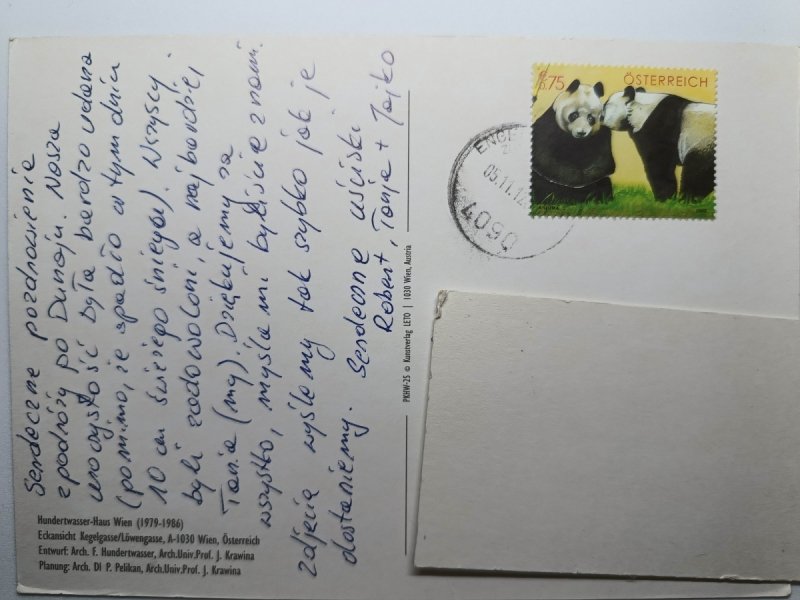 Serdeczne pozdrowienia
z podróży po Dunaju. Nasza
uroczystość była bardzo udana
(pomimo, że spadło w tym dniu
10 cm świeżego śniegu). Wszyscy
byli zadowoleni, a najbardziej
Tania (my). Dziękujemy za
wszystko, myślami byliście z nami.
zdjęcia wyślemy tak szybko jak je
dostaniemy. Serdeczne uściski
Robert, Tanja + Tajko
Hundertwasser-Haus Wien (1979-1986)
Eckansicht Kegelgasse/Löwengasse, A-1030 Wien, Österreich
Entwurf: Arch. F. Hundertwasser, Arch.Univ.Prof. J. Krawina
Planung: Arch. DI P. Pelikan, Arch.Univ.Prof. J. Krawina
PKHW-25 © Kunstverlag LETO | 1030 Wien, Austria
0.75 ÖSTERREICH
05.11.12
4090